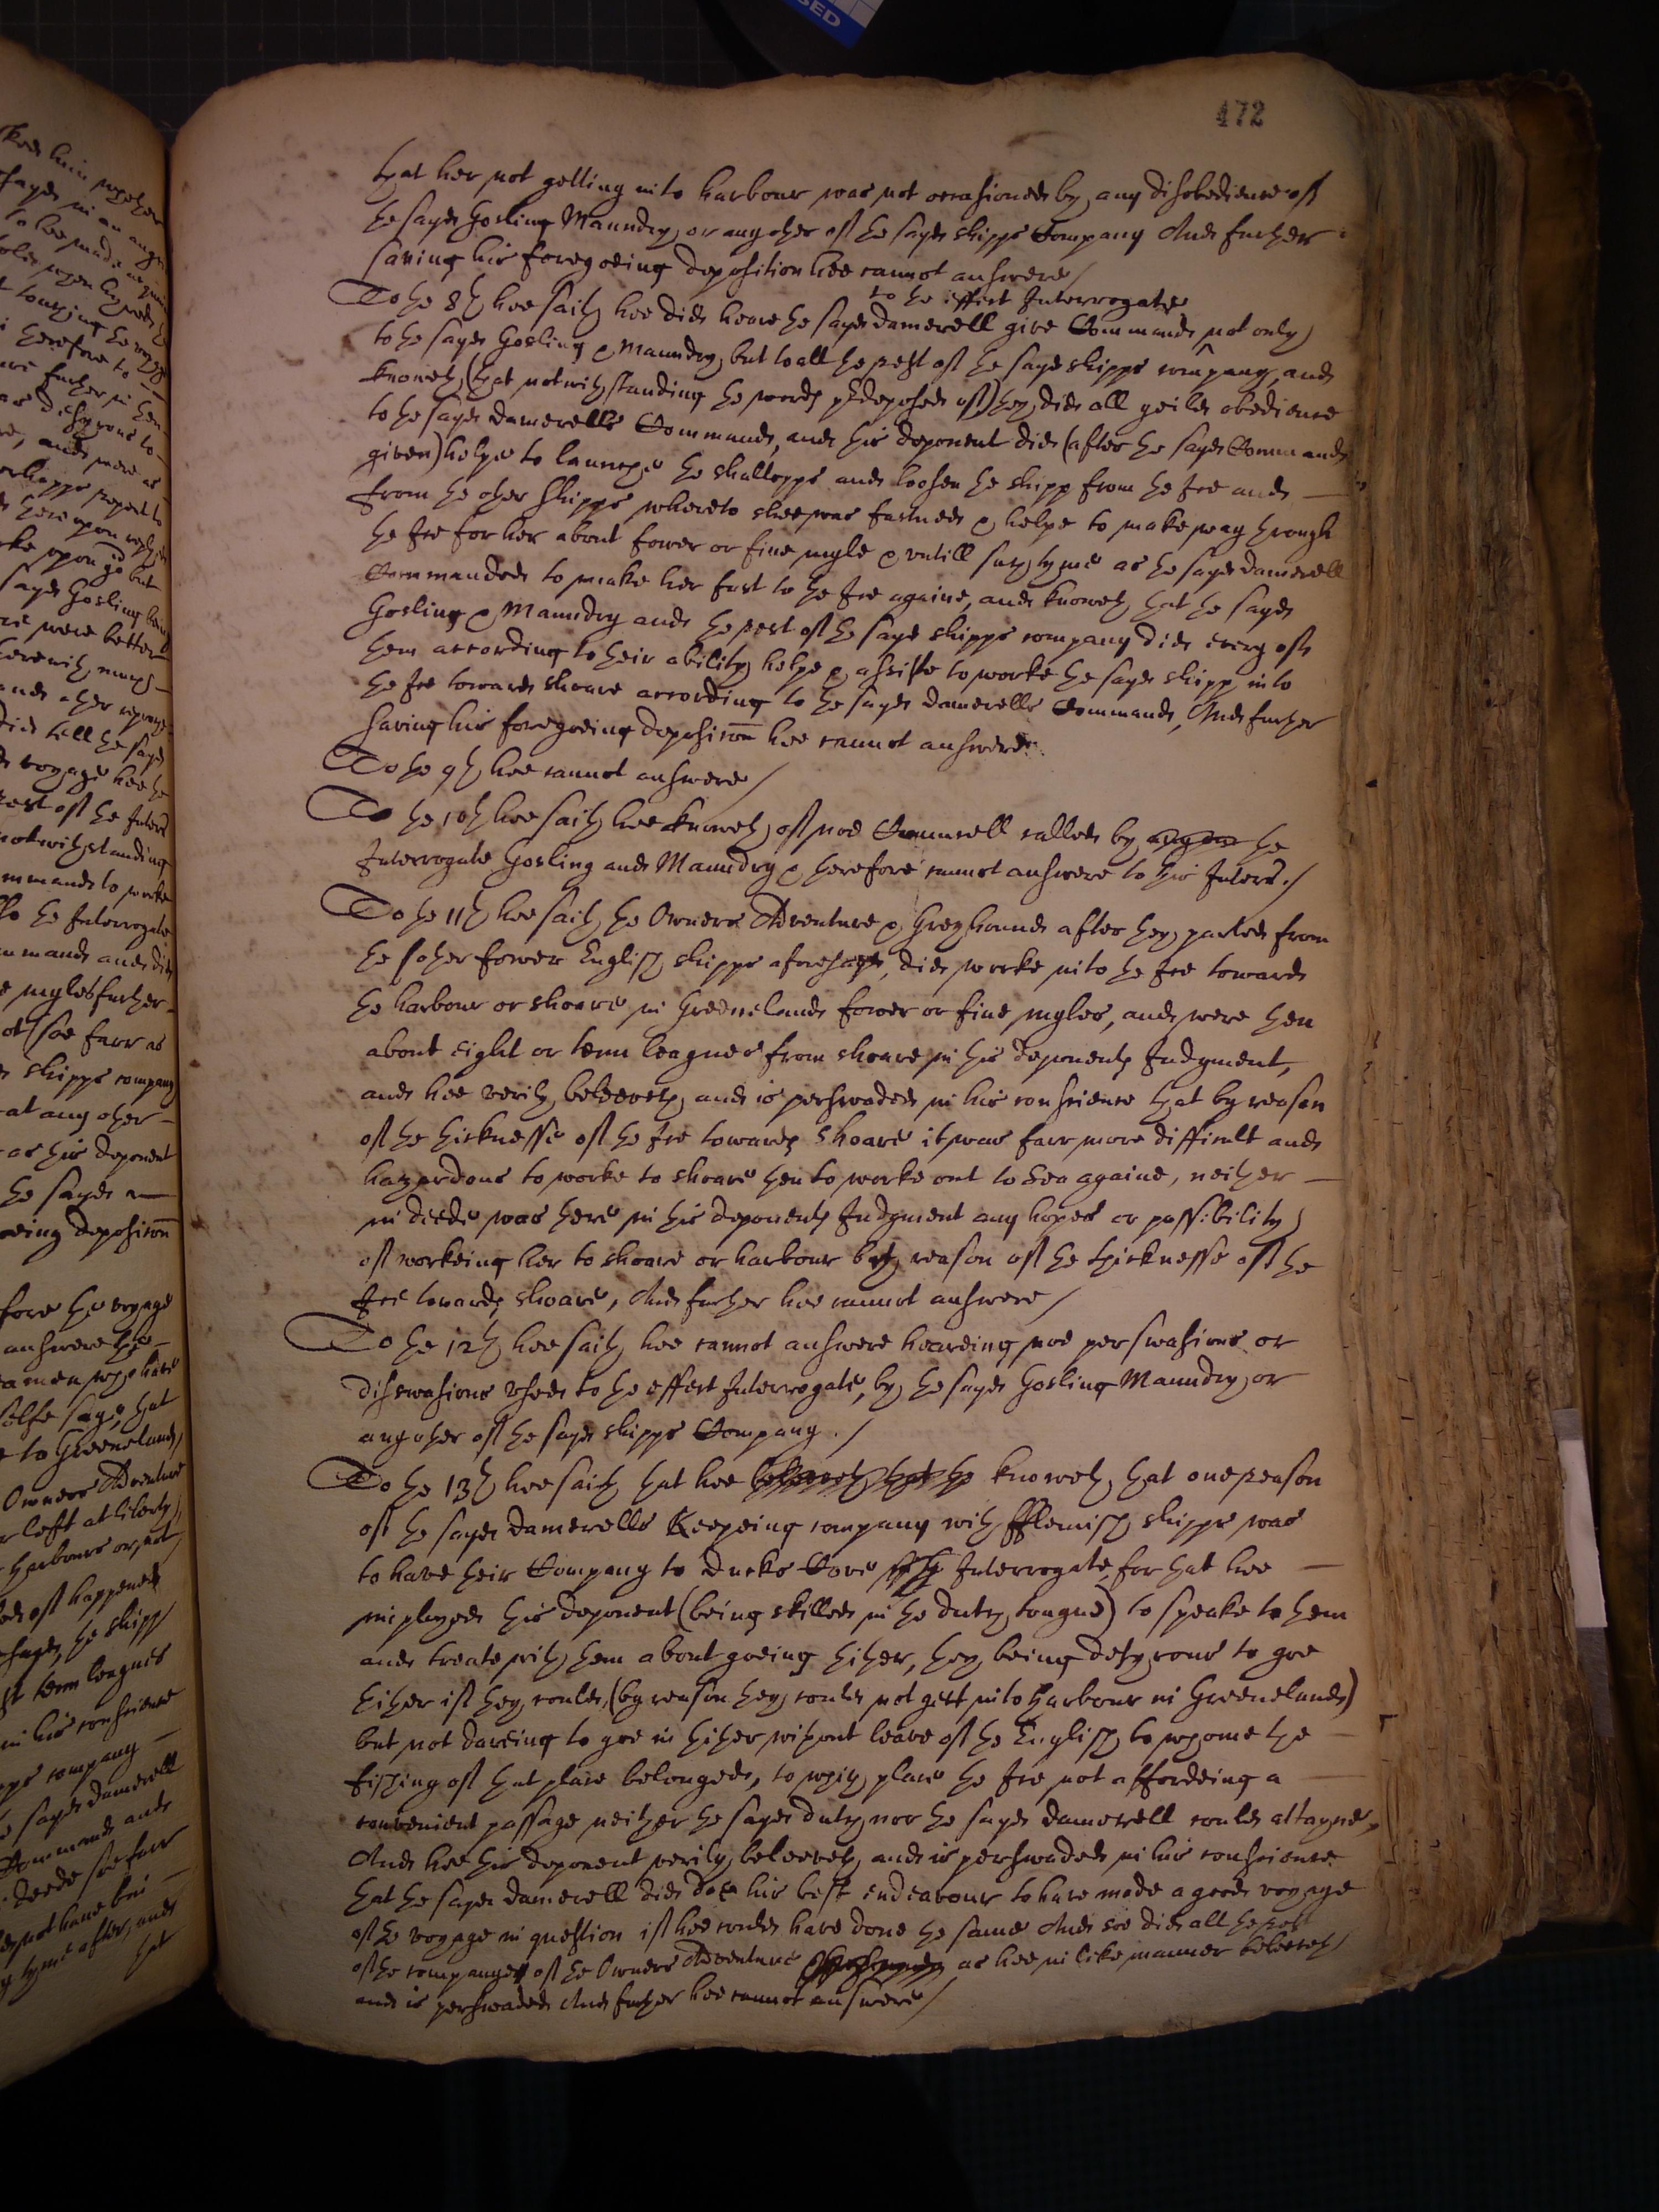 472
that her not getting into harbour was not occasioned by any disobedience of
the sayd Gosling Maundry, or any other of the sayd shipps Company And further
saving his foregoeing deposition hee cannot answere /
to the effect Interrogate
To the 8th hee saith hee did heare the sayd Damerell give Command not only
to the sayd Gosling & Maundry, but to all the rest of the sayd shipps company, and
knoweth, that notwithstanding the words predeposed of they did all yeild obedience
to the sayd Damerells Commands, and this deponent did (after the sayd Command
given) helpe to launche the shallopps and loosen the shipp from the Ice and
from the other shipps whereto shee was fastned & helpe to make way through
the Ice for her about fower or five myle & untill such tyme as the sayd Damerell
Commanded to make her fast to the Ice againe, and knoweth that the sayd
Gosling & Maundry and the rest of the sayd shipps company did every of
them according to their ability helpe & assiste to worke the sayd shipp into
the Ice towards shoare according to the sayd Damerells Commands, And further
saving his foregoeing deposicon hee cannot answere.
To the 9th hee cannot answere /
To the 10th hee saith hee knoweth of noe Councell called by the
Interrogate Gosling and Maundry & therefore cannot answere to this Interr. /
To the 11th hee saith the Owners Adventure & Greyhound after they parted from
the other fower English shipps aforesayd, did worke into the Ice towards
the harbour or shoare in Greeneland fower or five myles, and were then
about eight or tenn leagues from shoare in this deponents Judgment,
and hee verily beleeveth and is perswaded in his conscience that by reason
of the thicknesse of the Ice towards shoare it was farr more difficult and
hazardous to worke to shoare then to worke out to Sea againe, neither
in deede was there in this deponents Judgment any hopes or possibility
of workeing her to shoare or harbour by reason of the thicknesse of the
Ice towards shoare, And further hee cannot answere /
To the 12th hee saith hee cannot answere heareing noe perswasions or
disswasions used to the effect Interrogate, by the sayd Gosling Maundry or
any other of the sayd shipps Company. /
To the 13th hee saith that hee beleeveth that the knoweth that one reason
of the sayd Damerells Keepeing company with fflemish shipps was
to have their Company to Ducks Cove Interrogate, for that hee
imployed this deponent (being skilled in the dutch tongue) to speake to them
and treate with them about goeing thither, they being desyrous to goe
thither if they could, (by reason they could not gett into harbour in Greeneland)
but not dareing to goe in thither without leave of the English to whome the
fishing of that place belonged, to which place the Ice not affordeing a
convenient passage neither the sayd dutch nor the sayd Damerell could attayne,
And hee this deponent verily beleeveth and is perswaded in his conscience
that the sayd Damerell did doe his best endeavour to have made a good voyage
of the voyage in question if hee could have done the same And soe did all the rest
of the company of the Owners Adventure as hee in like manner beleeveth
and is perswaded And further hee cannot answere /